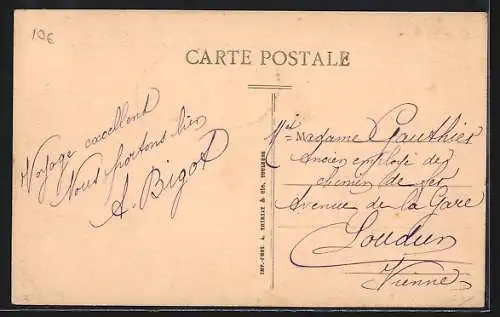 10€
CARTE POSTALE
Voyage excellent
Nous portons bien
A. Bigot
Mr et
= Madame Gauthier
Ancien employé de
chemin de fer
Avenue de la Gare
Loudun
Vienne